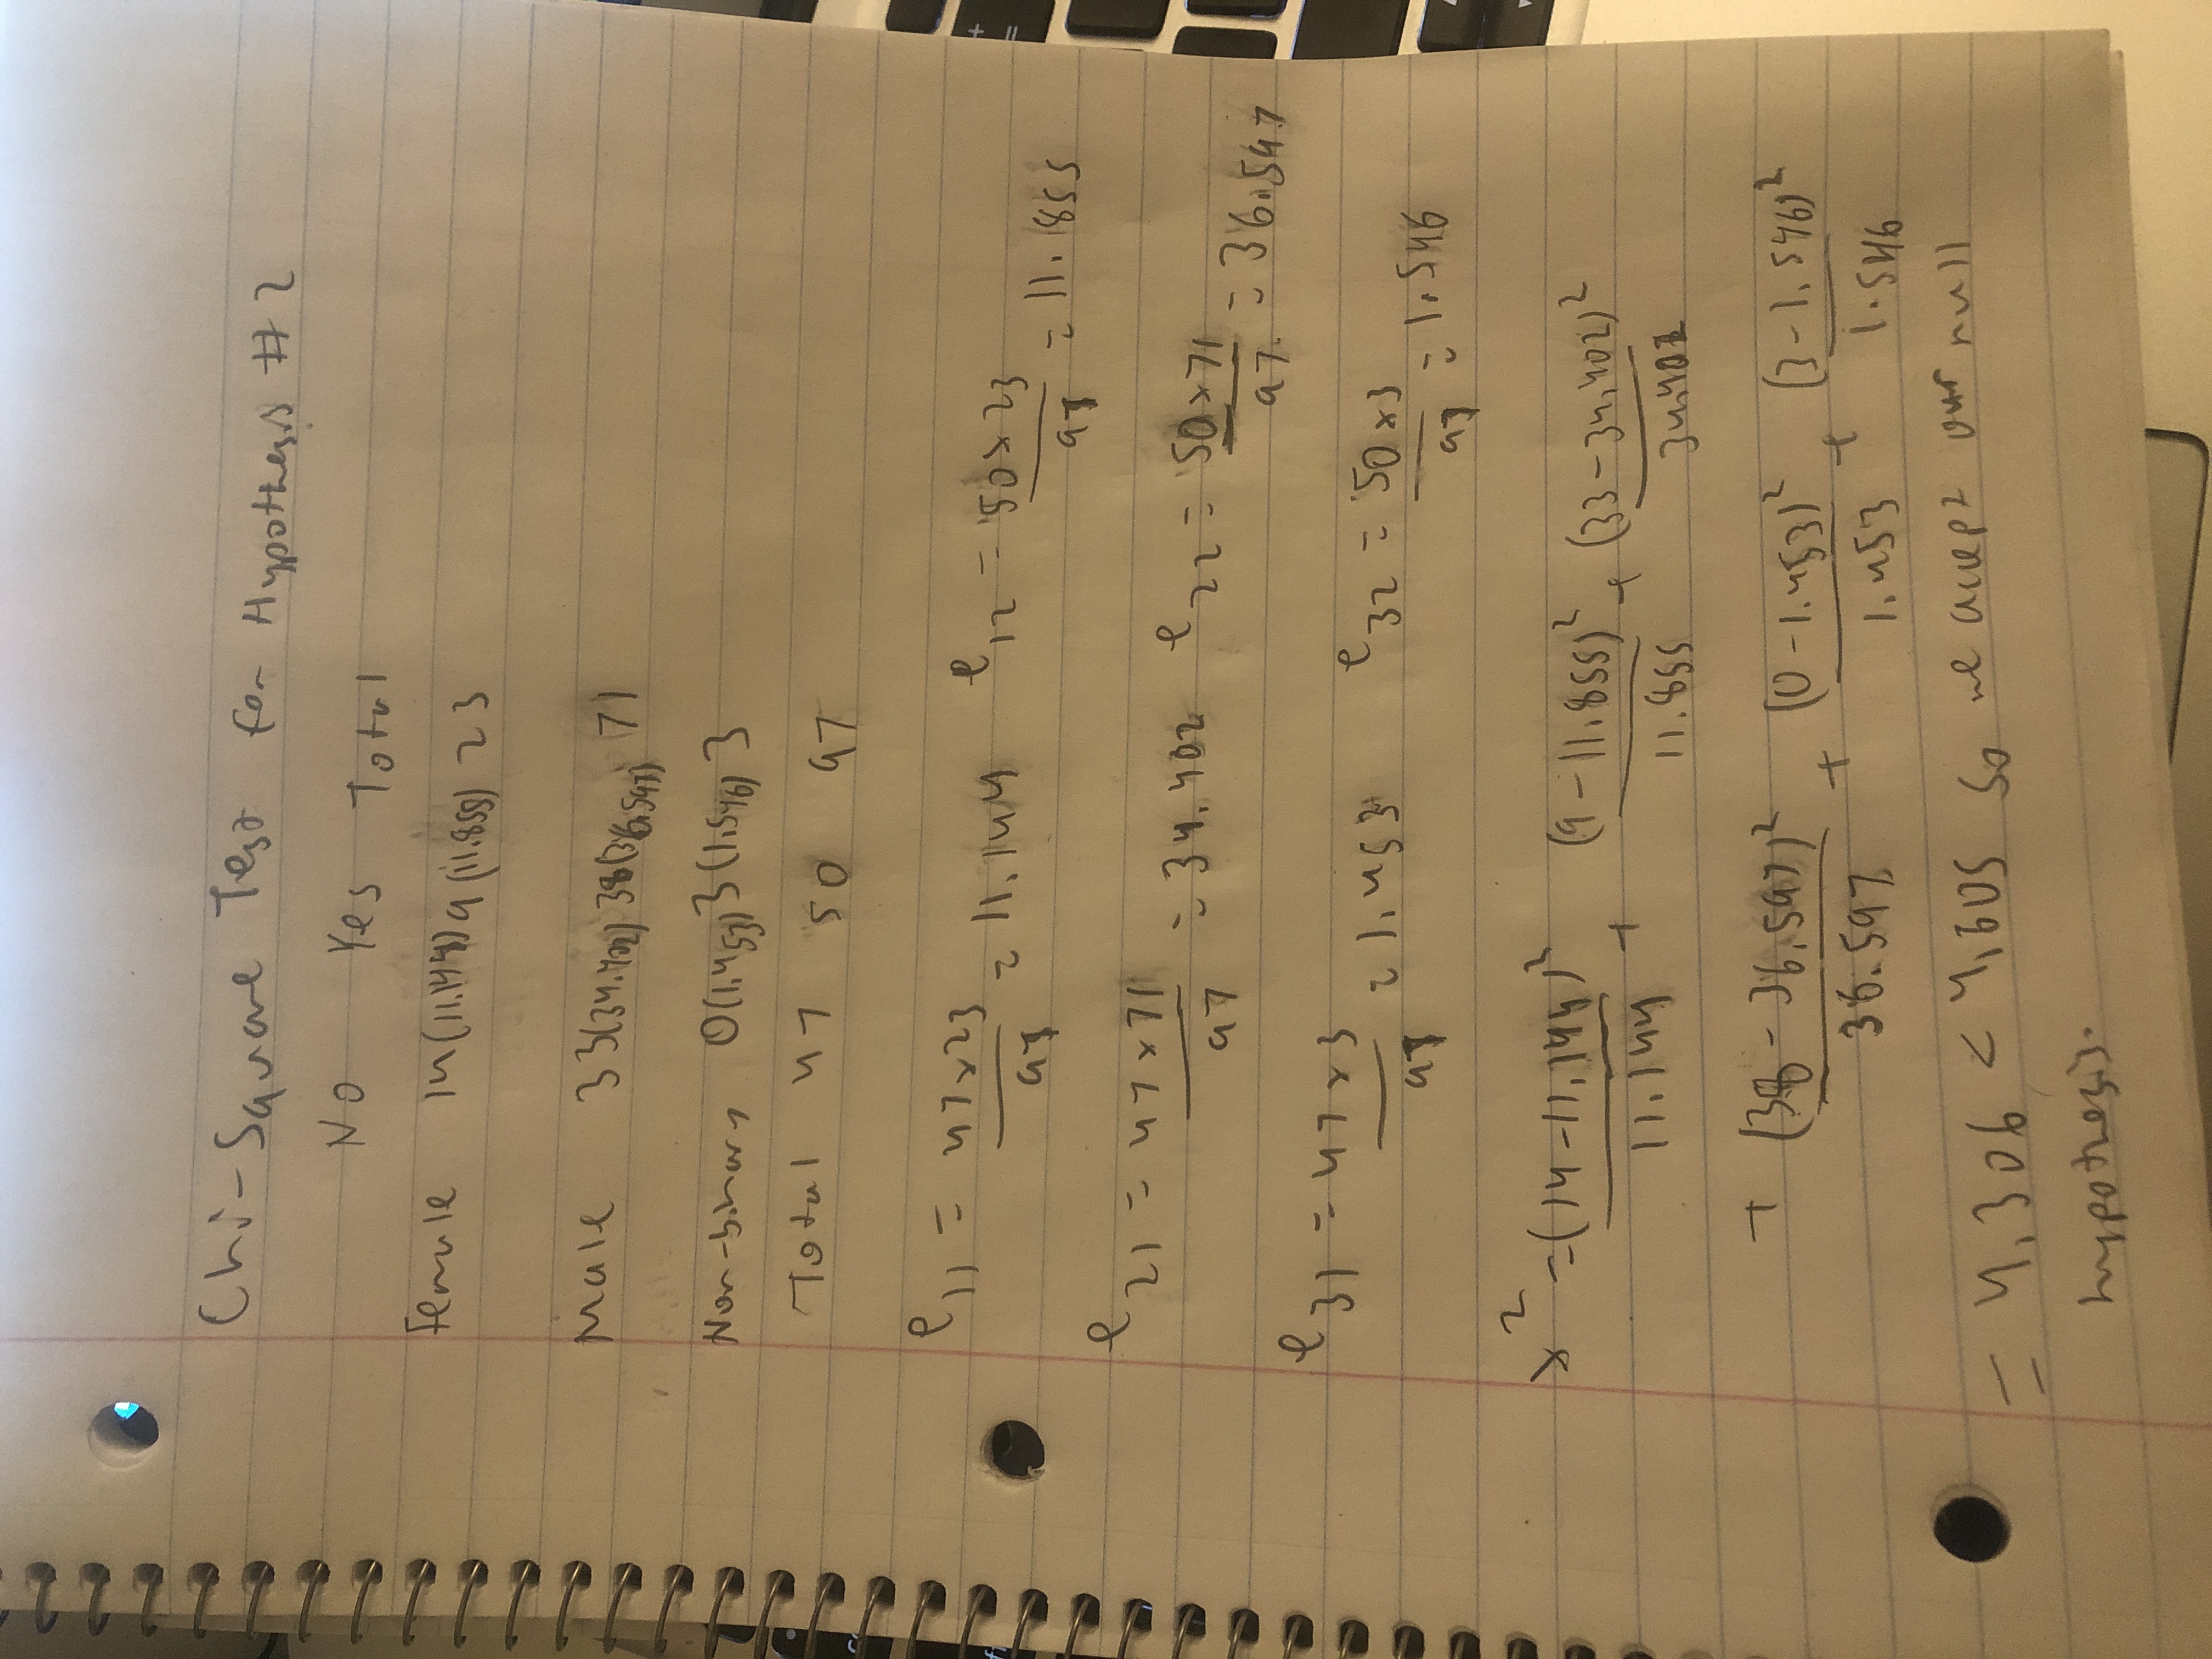 Chi-Square Test for Hypothesis #2
No Yes Total
Female 14(11.144) 9(11.855) 23
Male 33(34.402) 38(36.597) 71
Non-binary 0(1.453) 3(1.546) 3
Total 47 50 97
e11 = 47x23/97 = 11.144 e12 = 50x23/97 = 11.855
e21 = 47x71/97 = 34.402 e22 = 50x71/97 = 36.597
e31 = 47x3/97 = 1.453 e32 = 50x3/97 = 1.546
x² = (14-11.144)²/11.144 + (9-11.855)²/11.855 + (33-34.402)²/34.402
+ (38-36.597)²/36.597 + (0-1.453)²/1.453 + (3-1.546)²/1.546
= 4.306 < 4.605 so we accept our null
hypothesis.